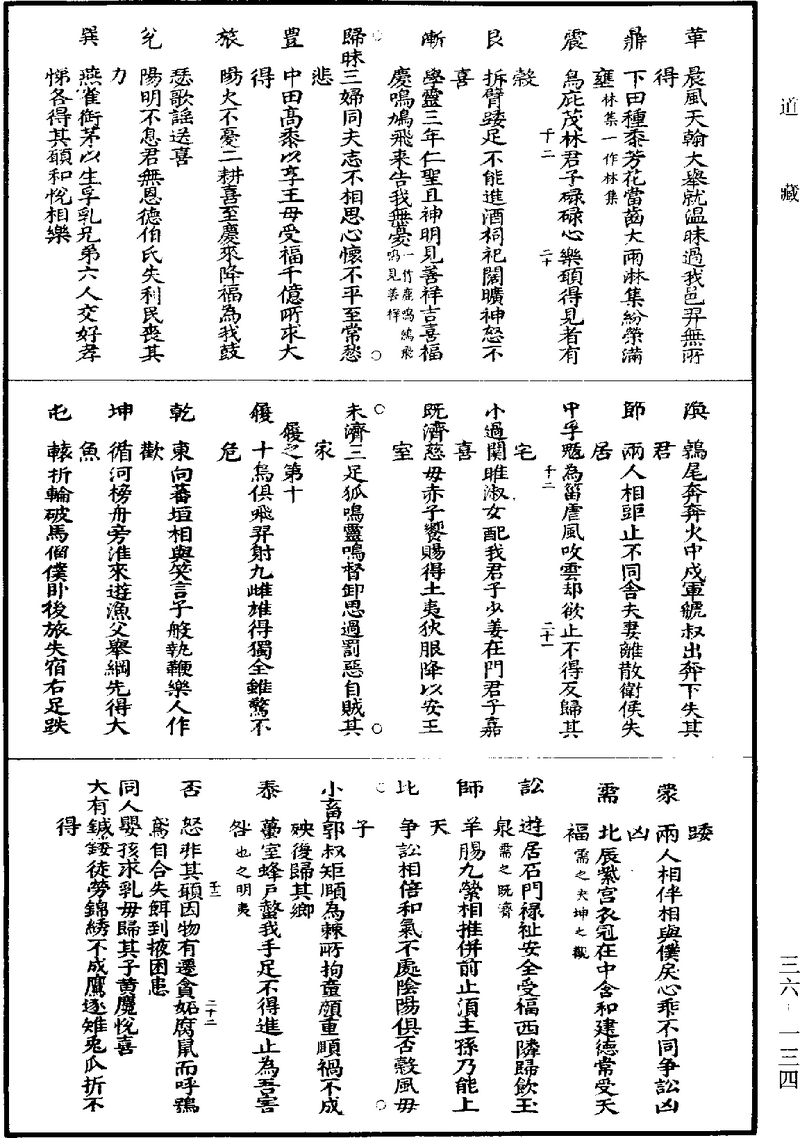 道藏
三六—一三四
革　晨風天翰大舉就温昧過我邑羿無所
得
鼎　下田種黍芳花當齒大雨淋集紛榮滿
甕林集一作林集
震　鳥庇茂林君子碌碌心樂願得見者有
十二　二十
穀
艮　拆臂踒足不能進酒祠祀闊曠神怒不
喜
漸　學靈三年仁聖且神明見善祥吉喜福
慶鳴鳩飛来告我無憂一作鹿鳴鴻飛鳴見善祥
歸昧三婦同夫志不相思心懷不平至常愁
悲
豊　中田高黍以享王母受福千億所求大
得
旅　陽火不憂二耕喜至慶來降福為我鼓
瑟歌謡送喜
兊　陽明不息君無恩德伯氏失利民喪其
力
巽　燕雀銜茅以生孚乳兄弟六人交好孝
悌各得其願和悅相樂
渙　鶉尾奔奔火中成軍虢叔出奔下失其
君
節　兩人相距止不同舍夫妻離散衛侯失
居
中孚䰡為笛虐風吹雲却欲止不得反歸其
十二　二十一
宅
小過關雎淑女配我君子少姜在門君子嘉
喜
既濟慈母赤子饗賜得士夷狄服降以安王
室
未濟三足狐鳴靈鳴督卸思過罰惡自賊其
家
履之第十
履　十鳥俱飛羿射九雌雄得獨全雖驚不
危
乾　東向蕃垣相與笑言子般執鞭樂人作
歡
坤　循河榜舟旁淮來遊漁父舉綱先得大
魚
屯　轅折輪破馬倒僕卧後旅失宿右足跌
踒
蒙　兩人相伴相與僕戾心乖不同争訟凶
凶
需　北辰紫宮衣冠在中含和建德常受天
福需之夬坤之觀
訟　遊居石門禄祉安全受福西隣歸飲玉
泉需之既濟
師　羊腸九縈相推併前止須主孫乃能上
天
比　争訟相倍和氣不處陰陽俱否穀風毋
子
小畜郭叔矩頤為棘所拘蚕顔重順禍不成
殃後歸其鄉
泰　蠆室蜂戸螫我手足不得進止為吾害
咎也之明夷
否　怒非其願因物有遷貪妬腐鼠而呼鵶
十二　二十二
鳶自合失餌到掖困患
同人嬰孩求乳毋歸其子黄麑悅喜
大有鍼綏徒勞錦綉不成鷹逐雉兎瓜折不
得